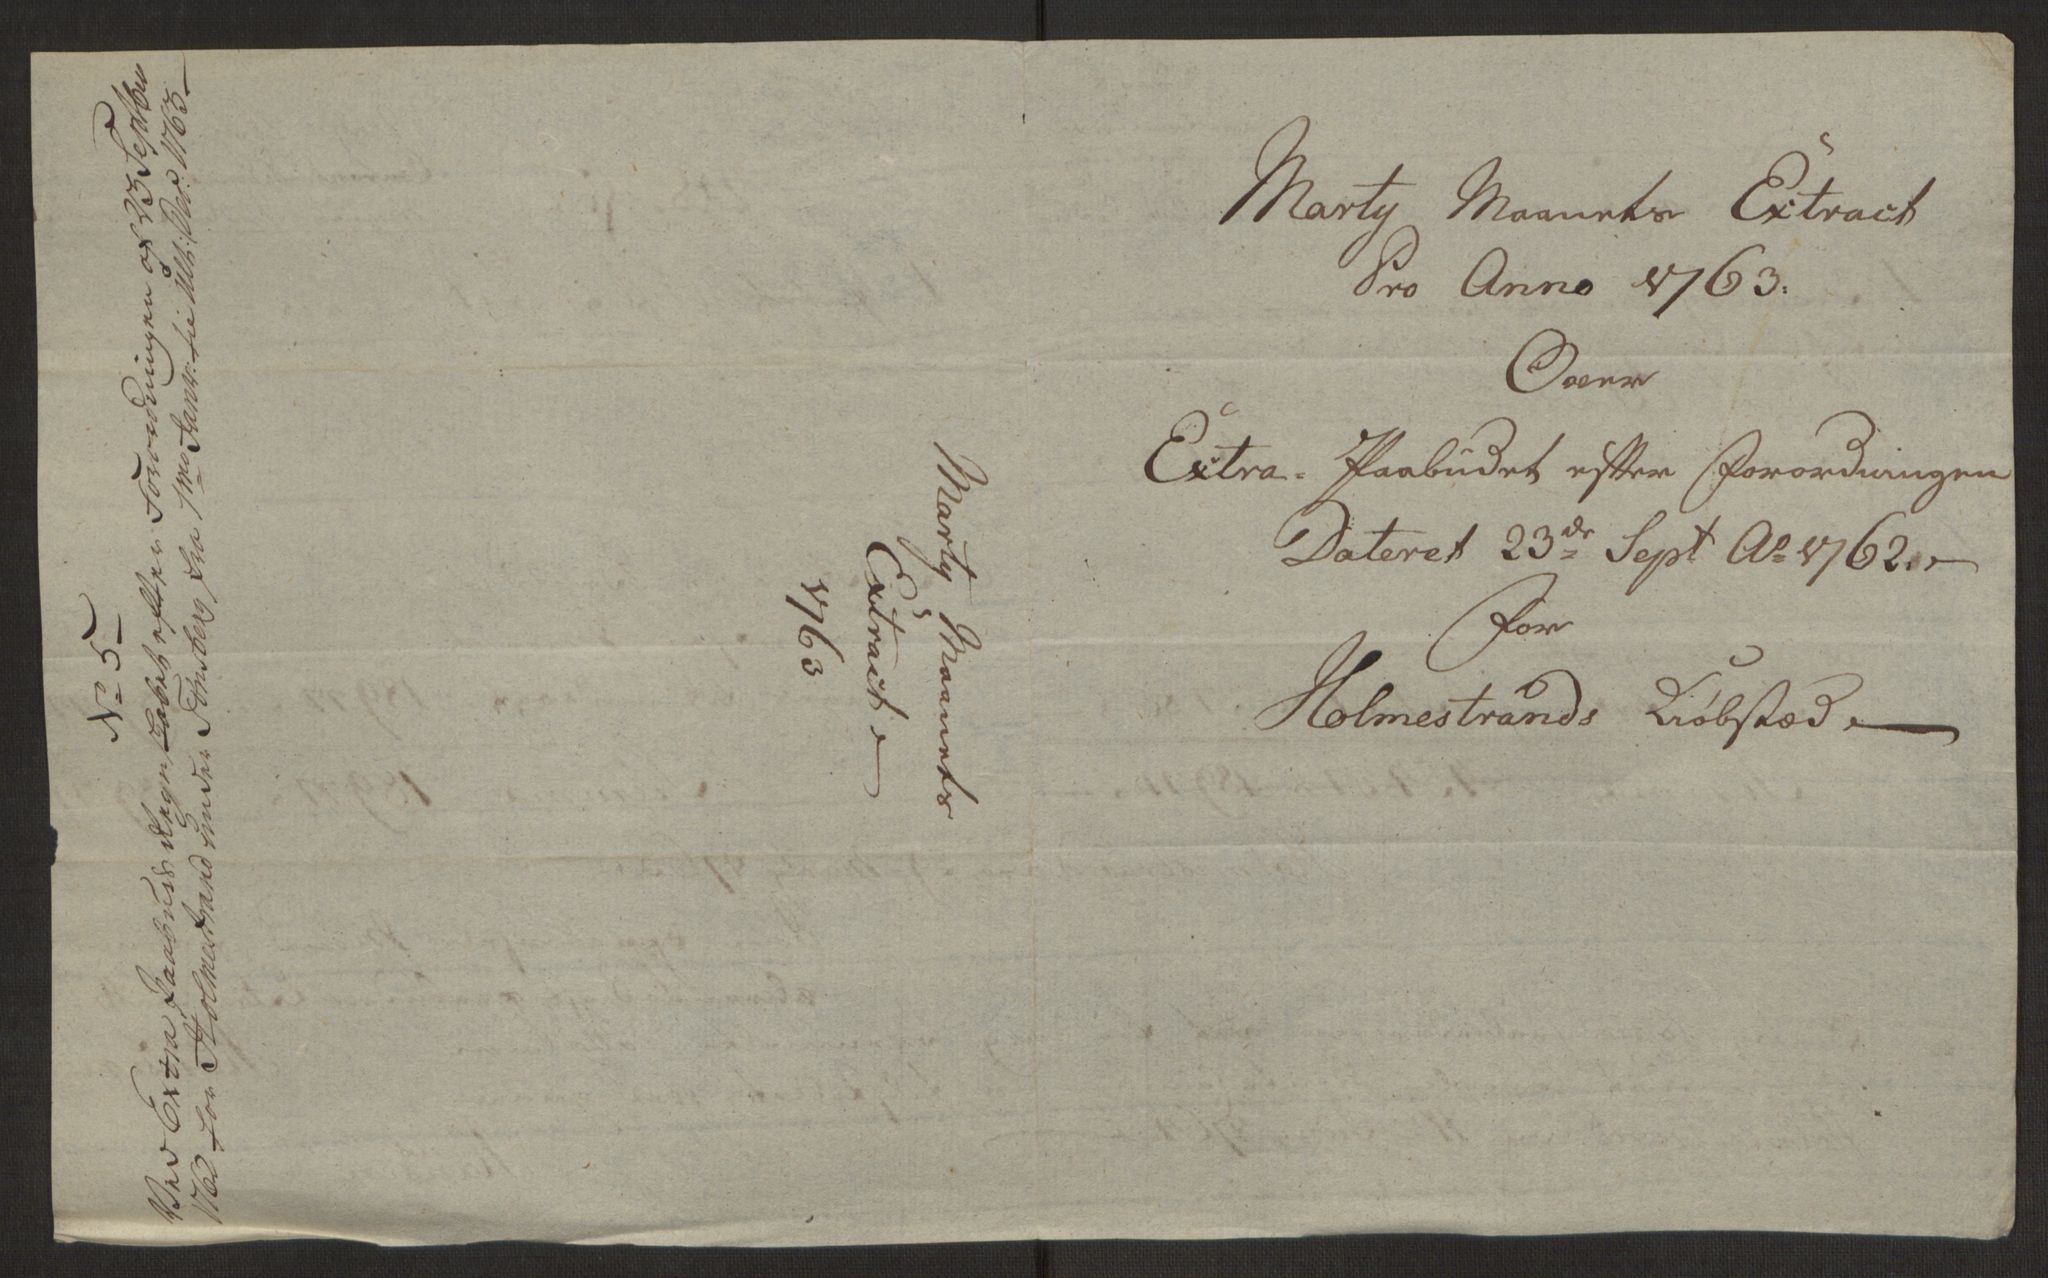 Marty Maanets Extract
Pro Anno 1763.
Over
Extra. Paabudet efter Forordningen
Dateret 23de Sept Ao 1762.
For
Holmestrands Kiöbstæd
Marty Maanets
Extract
1763
No 5
Ved Extra Paabuds Regnskabet efter Forordningen af 23 Septbr
1762 for Holmestrand under Tonsberg fra 1mo Janr. til Ult: Dec: 1763